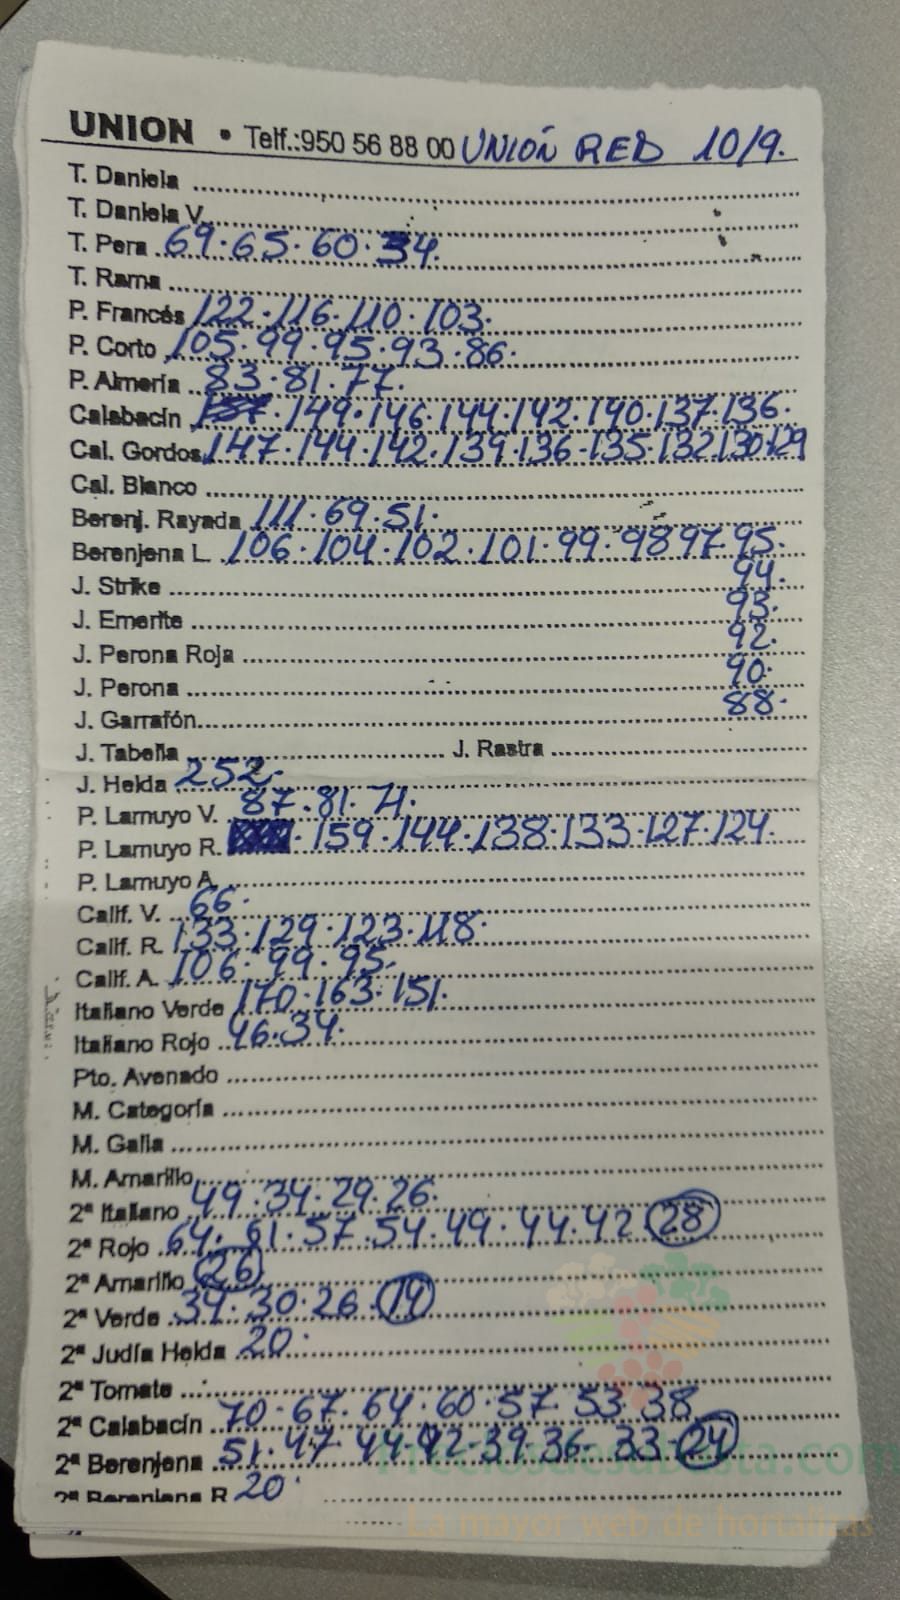 UNION • Telf.:950 56 88 00 UNIÓN RED 10/9.
T. Daniela
T. Daniela V.
T. Pera 69.65.60.34.
T. Rama
P. Francés 122.116.110.103.
P. Corto 105.99.95.93.86.
P. Almería 83.81.77.
Calabacín 157.149.146.144.142.140.137.136.
Cal. Gordos 147.144.142.139.136-135.132.130.129
Cal. Blanco
Berenj. Rayada 111.69.51.
Berenjena L. 106.104.102.101.99.98 97.95.
J. Strike 94.
J. Emerite 93.
J. Perona Roja 92.
J. Perona 90.
J. Garrafón 88.
J. Tabella J. Rastra
J. Helda 252.
P. Lamuyo V. 87.81.71.
P. Lamuyo R. 159.144.138.133.127.124.
P. Lamuyo A.
Calif. V. 66.
Calif. R. 133.129.123.118.
Calif. A. 106.99.95.
Italiano Verde 170.163.151.
Italiano Rojo 46.34.
Pto. Avenado
M. Categoría
M. Galia
M. Amarillo
2ª Italiano 49.34.29.26.
2ª Rojo 64.61.57.54.49.44.42 28
2ª Amarillo 26
2ª Verde 34.30.26.19
2ª Judía Helda 20.
2ª Tomate
2ª Calabacín 70.67.64.60.57.53.38
2ª Berenjena 51.47.44.42-39.36.33.24
2ª Berenjena R 20.
Preciosdesubasta.com
La mayor web de hortalizas